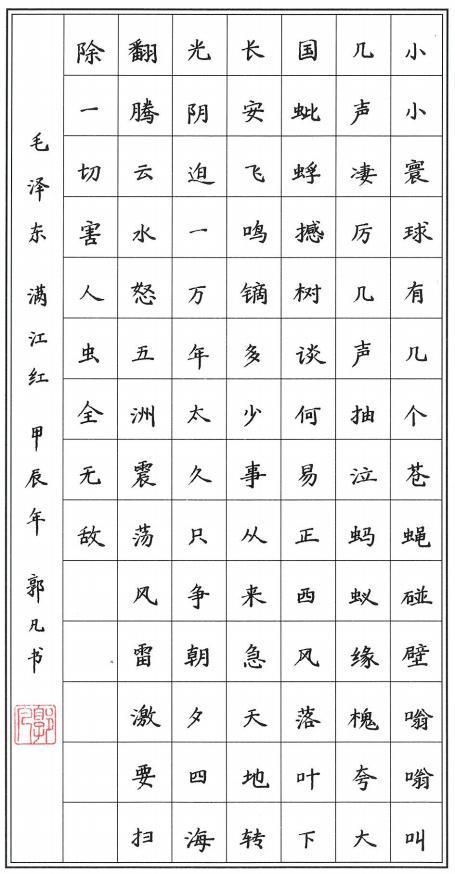 小小寰球有几个苍蝇碰壁嗡嗡叫
几声凄厉几声抽泣蚂蚁缘槐夸大
国蚍蜉撼树谈何易正西风落叶下
长安飞鸣镝多少事从来急天地转
光阴迫一万年太久只争朝夕四海
翻腾云水怒五洲震荡风雷激要扫
除一切害人虫全无敌
毛泽东 满江红 甲辰年 郭凡书